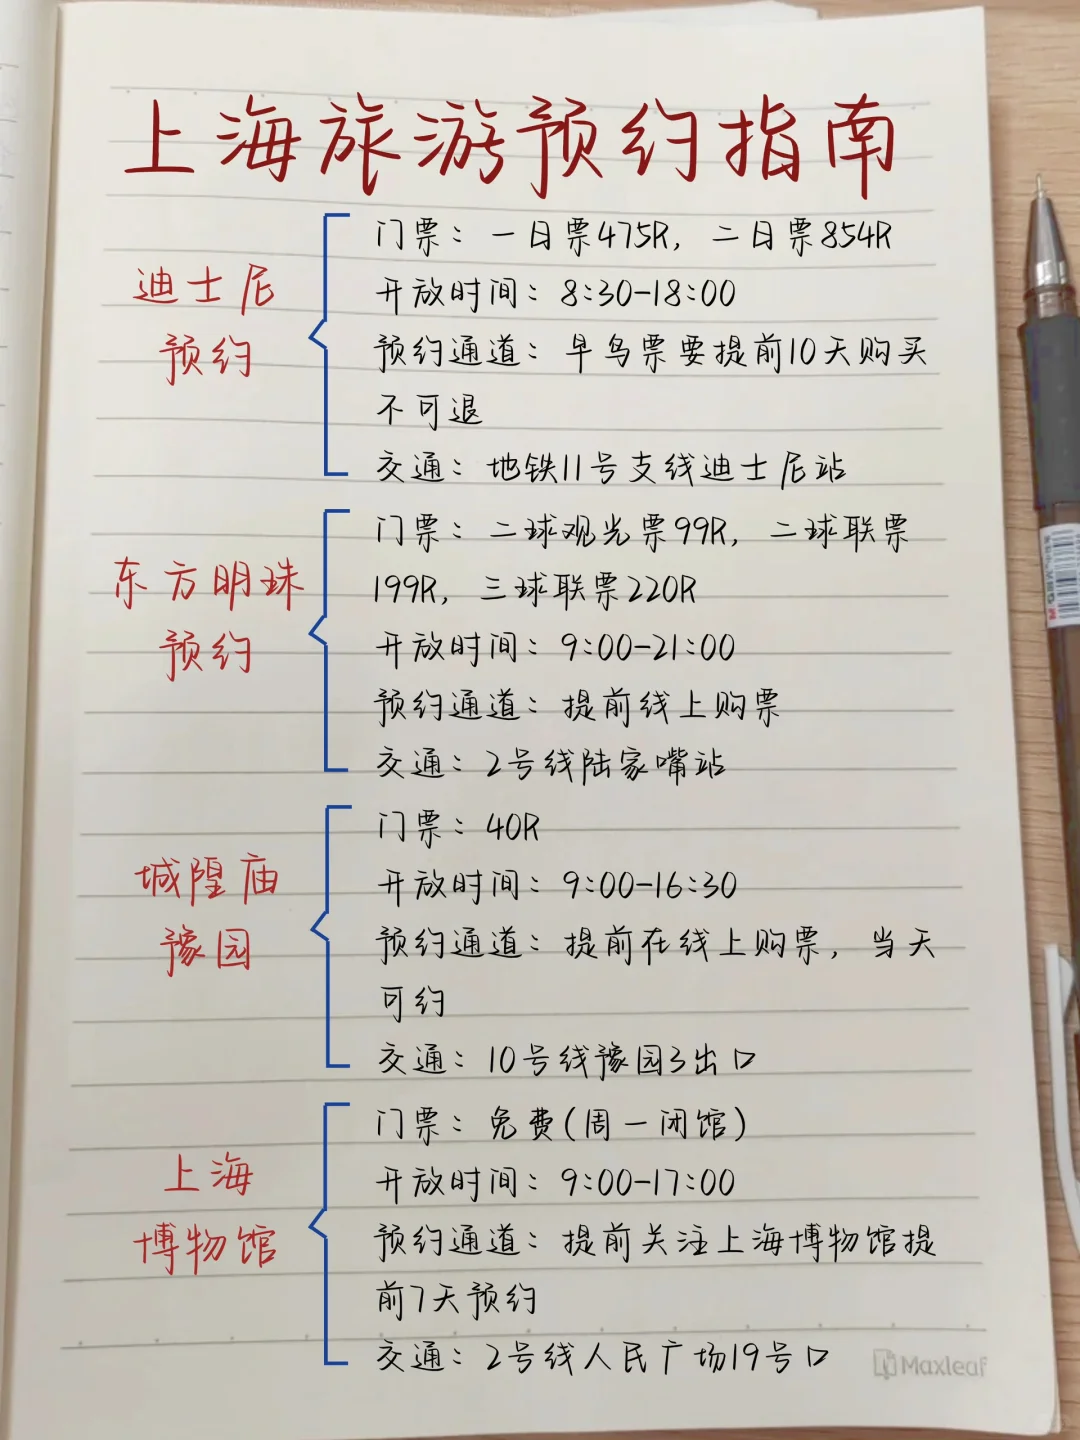 上海旅游预约指南
迪士尼
预约
门票：一日票475R，二日票854R
开放时间：8:30-18:00
预约通道：早鸟票要提前10天购买
不可退
交通：地铁11号支线迪士尼站
东方明珠
预约
门票：二球观光票99R，二球联票
199R，三球联票220R
开放时间：9:00-21:00
预约通道：提前线上购票
交通：2号线陆家嘴站
城隍庙
豫园
门票：40R
开放时间：9:00-16:30
预约通道：提前在线上购票，当天
可约
交通：10号线豫园3出口
上海
博物馆
门票：免费(周一闭馆)
开放时间：9:00-17:00
预约通道：提前关注上海博物馆提
前7天预约
交通：2号线人民广场19号口
Maxleaf